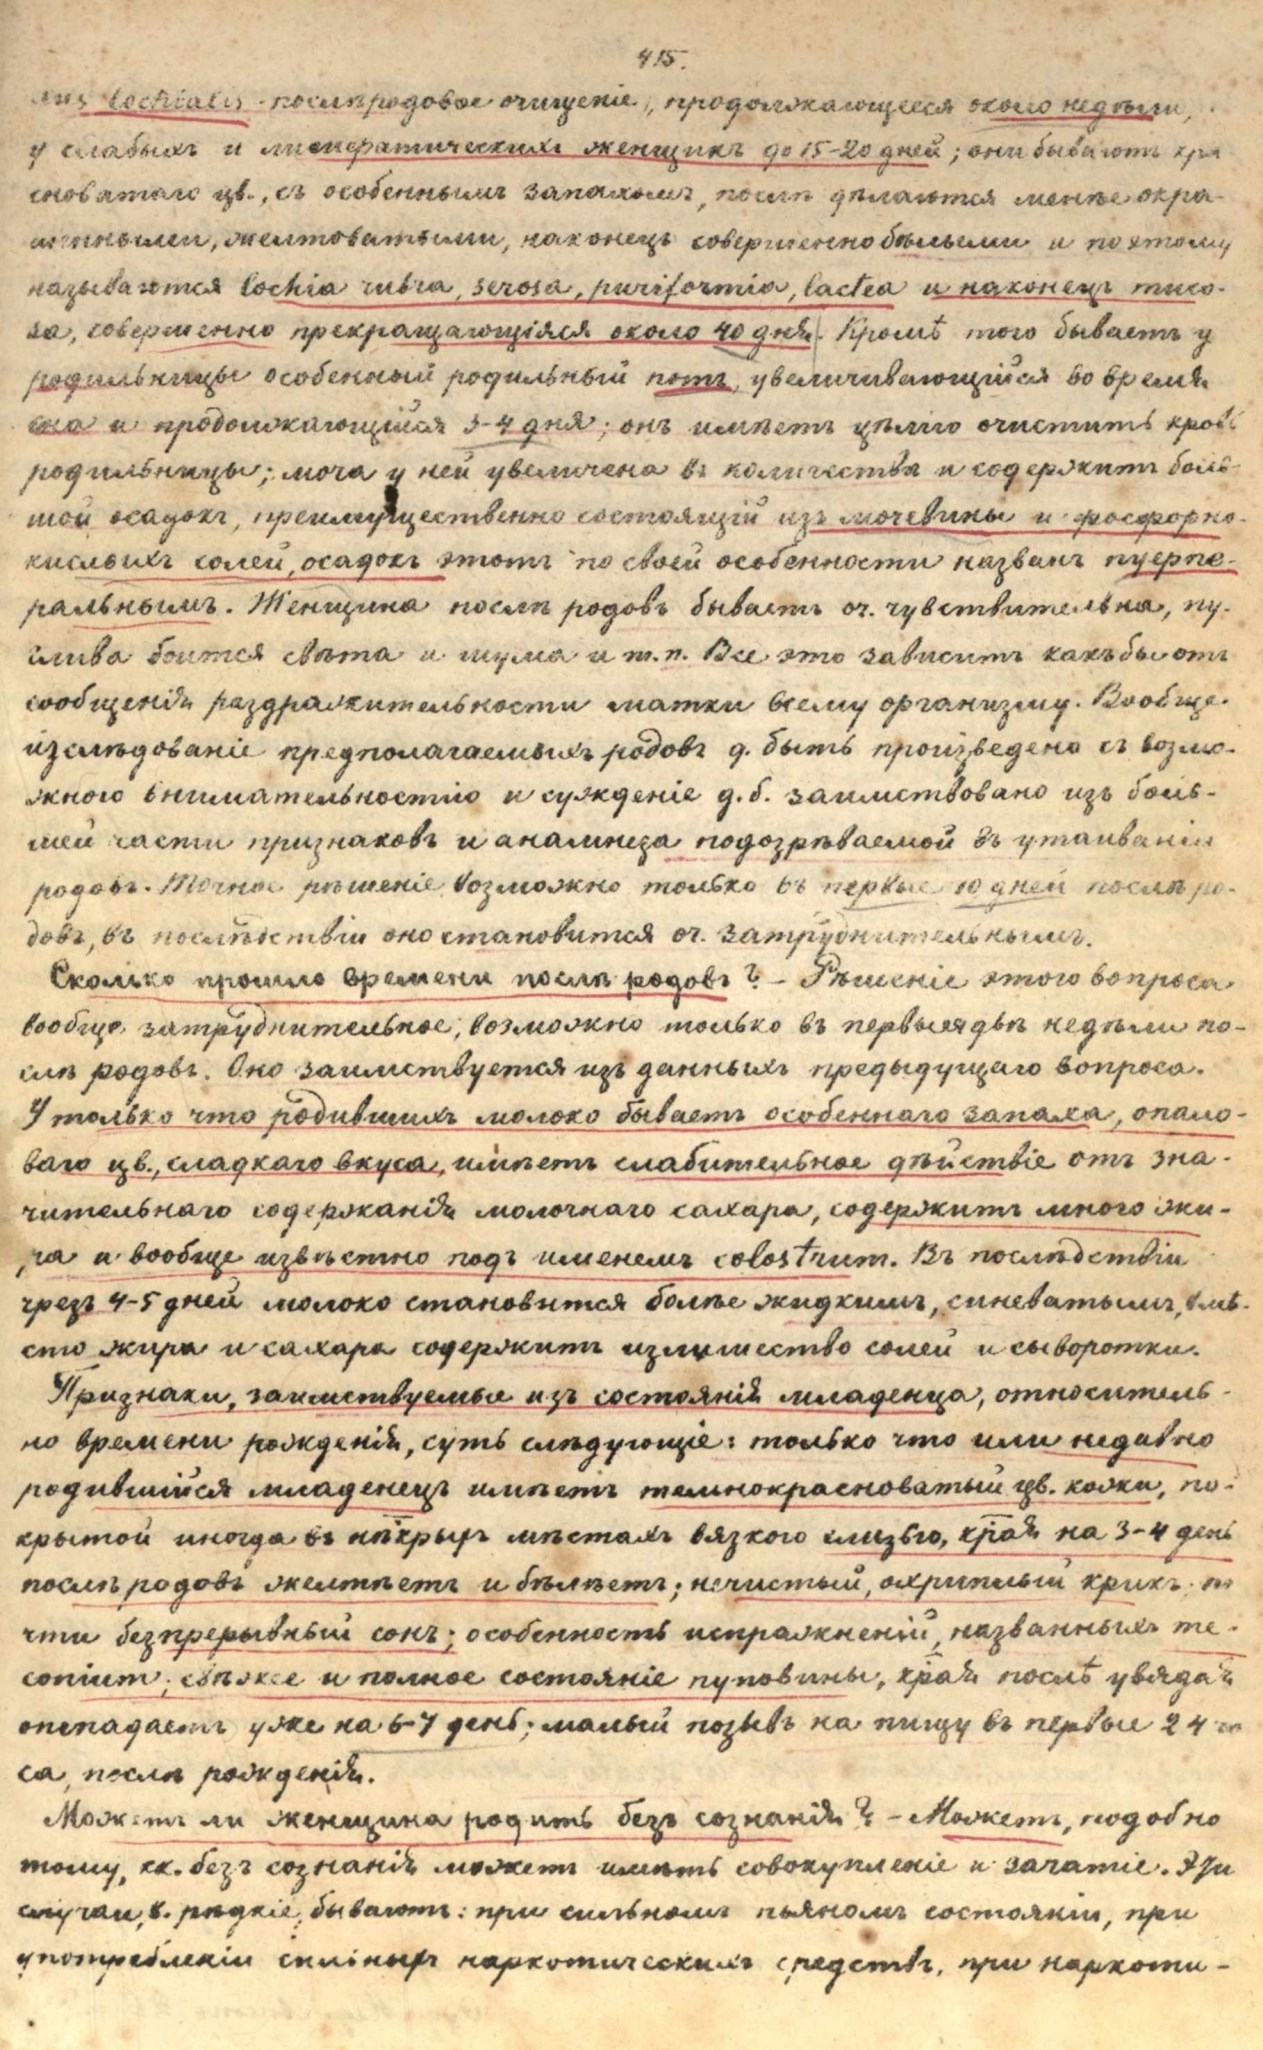 415.
lochialis - послѣродовое очищеніе, продолжающееся около недѣли,
у слабыхъ и лимфатическихъ женщинъ до 15-20 дней; они бываютъ кра
сноватаго цв., съ особеннымъ запахомъ, послѣ дѣлаются менѣе окра-
шенными, желтоватыми, наконецъ совершенно бѣлыми и поэтому
называются lochia rubra, serosa, puriformia, lactea и наконецъ muco-
sa, совершенно прекращающіяся около 40 дня. Кромѣ того бываетъ у
родильницы особенный родильный потъ, увеличивающійся во время
сна и продолжающійся 3-4 дня; онъ имѣетъ цѣлію очистить кровь
родильницы; моча у ней увеличена въ количествѣ и содержитъ боль-
шой осадокъ, преимущественно состоящій изъ мочевины и фосфорно-
кислыхъ солей, осадокъ этотъ по своей особенности названъ пуерпе-
ральнымъ. Женщина послѣ родовъ бываетъ оч. чувствительна, пу-
глива боится свѣта и шума и т.п. Все это зависитъ какъ бы отъ
сообщенія раздражительности матки всему организму. Вообще
изслѣдованіе предполагаемыхъ родовъ д. быть произведено съ возмо-
жною внимательностію и сужденіе д.б. заимствовано изъ боль-
шей части признаковъ и анамнеза подозрѣваемой въ утаиваніи
родовъ. Точное рѣшеніе возможно только въ первые 10 дней послѣ ро-
довъ, въ послѣдствіи оно становится оч. затруднительнымъ.
Сколько прошло времени послѣ родовъ? - Рѣшеніе этого вопроса
вообще затруднительное, возможно только въ первыя двѣ недѣли по-
слѣ родовъ. Оно заимствуется изъ данныхъ предыдущаго вопроса.
У только что родившихъ молоко бываетъ особеннаго запаха, опало-
ваго цв., сладкаго вкуса, имѣетъ слабительное дѣйствіе отъ зна-
чительнаго содержанія молочнаго сахара, содержитъ много жи-
ра и вообще извѣстно подъ именемъ colostrum. Въ послѣдствіи
чрезъ 4-5 дней молоко становится болѣе жидкимъ, синеватымъ, вмѣ-
сто жира и сахара содержитъ излишество солей и сыворотки.
Признаки, заимствуемые изъ состоянія младенца, относитель-
но времени рожденія, суть слѣдующіе: только что или недавно
родившійся младенецъ имѣетъ темнокрасноватый цв. кожи, по-
крытой иногда въ нѣкрыхъ мѣстахъ вязкою слизью, края на 3-4 день
послѣ родовъ желтѣетъ и бѣлѣетъ; нечистый, охриплый крикъ; по
чти безпрерывный сонъ; особенность испражненій, названныхъ me-
conium; свѣжее и полное состояніе пуповины, края послѣ увядая
отпадаетъ уже на 6-7 день; малый позывъ на пищу въ первые 24 ча
са, послѣ рожденія.
Можетъ ли женщина родить безъ сознанія? - Можетъ, подобно
тому, кк. безъ сознанія можетъ имѣть совокупленіе и зачатіе. Эти
случаи, в. рѣдкіе, бываютъ: при сильномъ пьяномъ состояніи, при
употребленіи сильныхъ наркотическихъ средствъ, при наркоти-